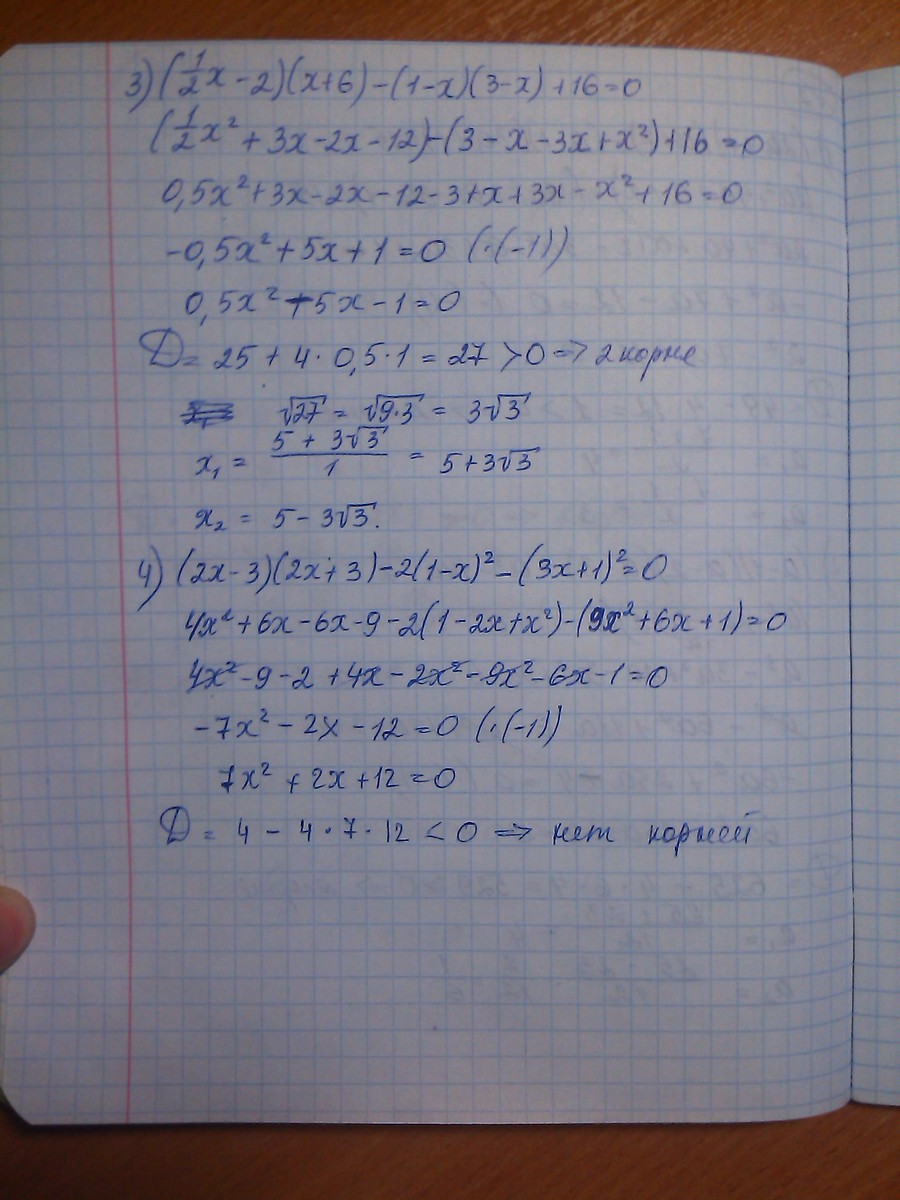 3) (1/2x - 2)(x+6) - (1-x)(3-x) + 16 = 0
(1/2x² + 3x - 2x - 12) - (3 - x - 3x + x²) + 16 = 0
0,5x² + 3x - 2x - 12 - 3 + x + 3x - x² + 16 = 0
-0,5x² + 5x + 1 = 0 (·(-1))
0,5x² - 5x - 1 = 0
D = 25 + 4 · 0,5 · 1 = 27 > 0 => 2 корня
√27 = √9·3 = 3√3
x₁ = (5 + 3√3)/1 = 5 + 3√3
x₂ = 5 - 3√3.
4) (2x-3)(2x+3) - 2(1-x)² - (3x+1)² = 0
4x² + 6x - 6x - 9 - 2(1 - 2x + x²) - (9x² + 6x + 1) = 0
4x² - 9 - 2 + 4x - 2x² - 9x² - 6x - 1 = 0
-7x² - 2x - 12 = 0 (·(-1))
7x² + 2x + 12 = 0
D = 4 - 4 · 7 · 12 < 0 => нет корней